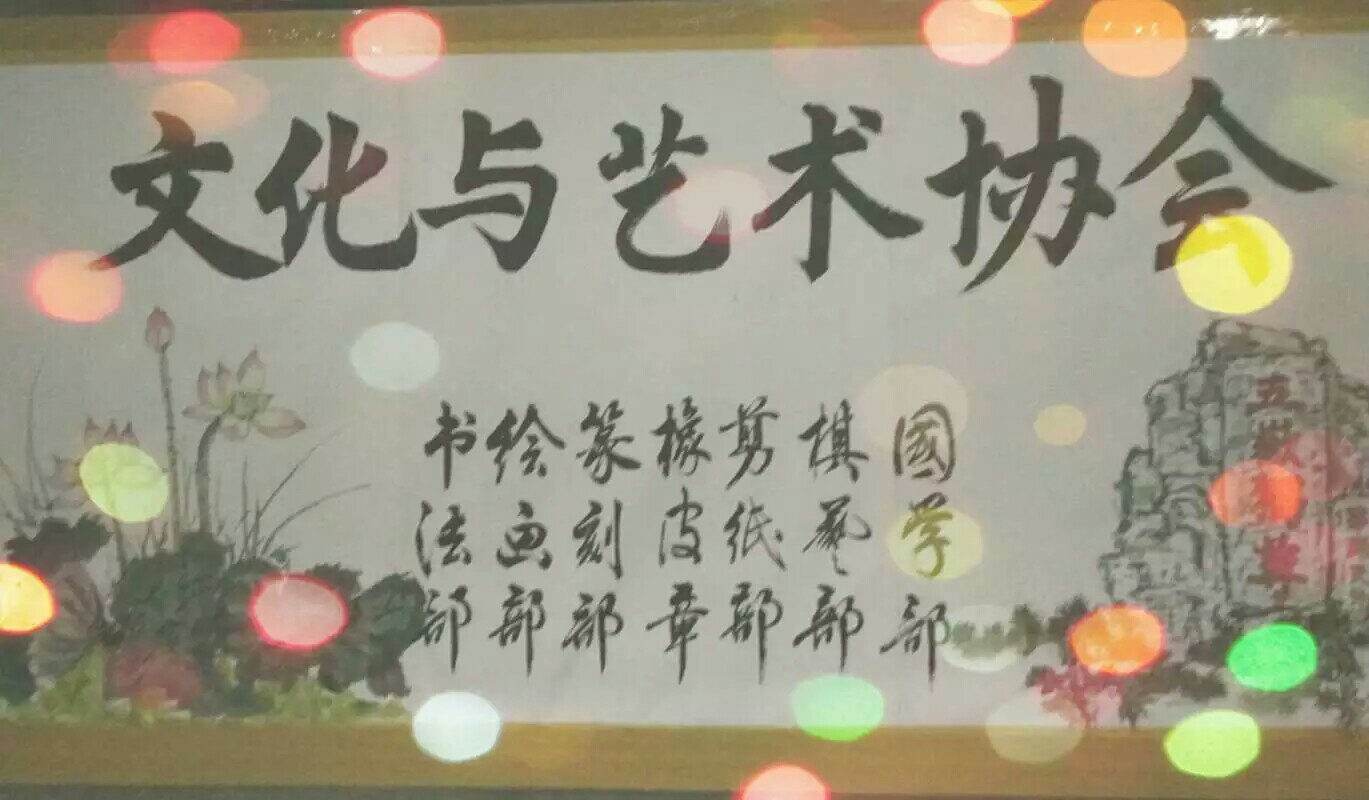 文化与艺术协会
书法部
绘画部
篆刻部
橡皮章
剪纸部
棋藝部
國学部